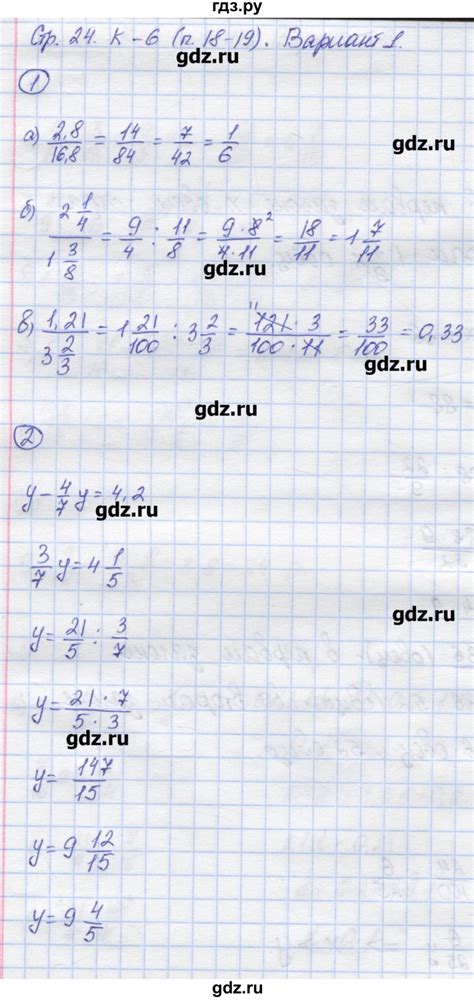 гдз.ру
Стр. 24. К-6 (п. 18-19). Вариант 1.
gdz.ru
1
а) 2,8/16,8 = 14/84 = 7/42 = 1/6
gdz.ru
б) 2 1/4 / 1 3/8 = 9/4 : 11/8 = 9·8²/4·11 = 18/11 = 1 7/11
gdz.ru
gdz.ru
в) 1,21 / 3 2/3 = 1 21/100 : 3 2/3 = 121¹¹·3/100·11 = 33/100 = 0,33
gdz.ru
gdz.ru
2
y - 4/7 y = 4,2
gdz.ru
3/7 y = 4 1/5
gdz.ru
y = 21/5 : 3/7
y = 21·7/5·3
gdz.ru
gdz.ru
y = 147/15
y = 9 12/15
gdz.ru
gdz.ru
y = 9 4/5
gdz.ru